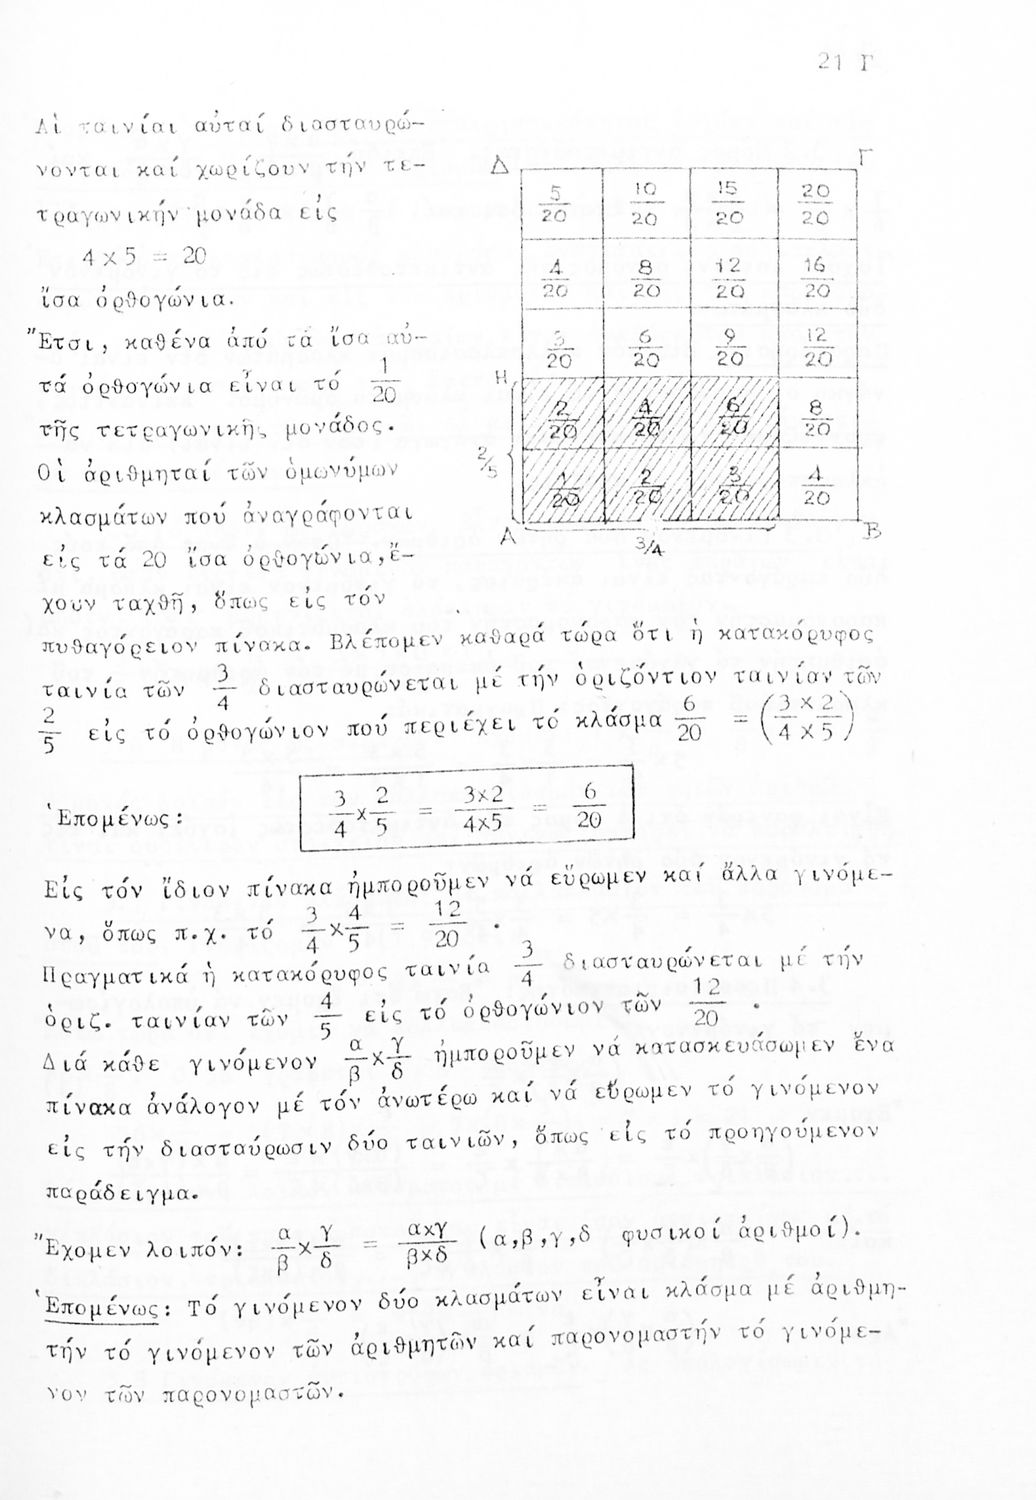 21 Γ
Αἱ ταινίαι αὐταί διασταυρώ-
νονται καί χωρίζουν τήν τε-
τραγωνικήν μονάδα εἰς
4 x 5 = 20
ἴσα ὀρθογώνια.
Ἔτσι, καθένα ἀπό τά ἴσα αὐ-
τά ὀρθογώνια εἶναι τό 1/20
τῆς τετραγωνικῆς μονάδος.
Οἱ ἀριθμηταί τῶν ὁμωνύμων
κλασμάτων πού ἀναγράφονται
εἰς τά 20 ἴσα ὀρθογώνια, ἔ-
χουν ταχθῆ, ὅπως εἰς τόν
Δ Γ
5/20 10/20 15/20 20/20
4/20 8/20 12/20 16/20
3/20 6/20 9/20 12/20
Η
2/20 4/20 6/20 8/20
2/5
1/20 2/20 3/20 4/20
Α Β
3/4
πυθαγόρειον πίνακα. Βλέπομεν καθαρά τώρα ὅτι ἡ κατακόρυφος
ταινία τῶν 3/4 διασταυρώνεται μέ τήν ὁριζόντιον ταινίαν τῶν
2/5 εἰς τό ὀρθογώνιον πού περιέχει τό κλάσμα 6/20 = (3 x 2 / 4 x 5)
Ἑπομένως: 3/4 x 2/5 = 3x2/4x5 = 6/20
Εἰς τόν ἴδιον πίνακα ἠμποροῦμεν νά εὕρωμεν καί ἄλλα γινόμε-
να, ὅπως π.χ. τό 3/4 x 4/5 = 12/20 .
Πραγματικά ἡ κατακόρυφος ταινία 3/4 διασταυρώνεται μέ τήν
ὁριζ. ταινίαν τῶν 4/5 εἰς τό ὀρθογώνιον τῶν 12/20 .
Διά κάθε γινόμενον α/β x γ/δ ἠμποροῦμεν νά κατασκευάσωμεν ἕνα
πίνακα ἀνάλογον μέ τόν ἀνωτέρω καί νά εὕρωμεν τό γινόμενον
εἰς τήν διασταύρωσιν δύο ταινιῶν, ὅπως εἰς τό προηγούμενον
παράδειγμα.
Ἔχομεν λοιπόν: α/β x γ/δ = αxγ/βxδ (α,β,γ,δ φυσικοί ἀριθμοί).
Ἑπομένως: Τό γινόμενον δύο κλασμάτων εἶναι κλάσμα μέ ἀριθμη-
τήν τό γινόμενον τῶν ἀριθμητῶν καί παρονομαστήν τό γινόμε-
νον τῶν παρονομαστῶν.